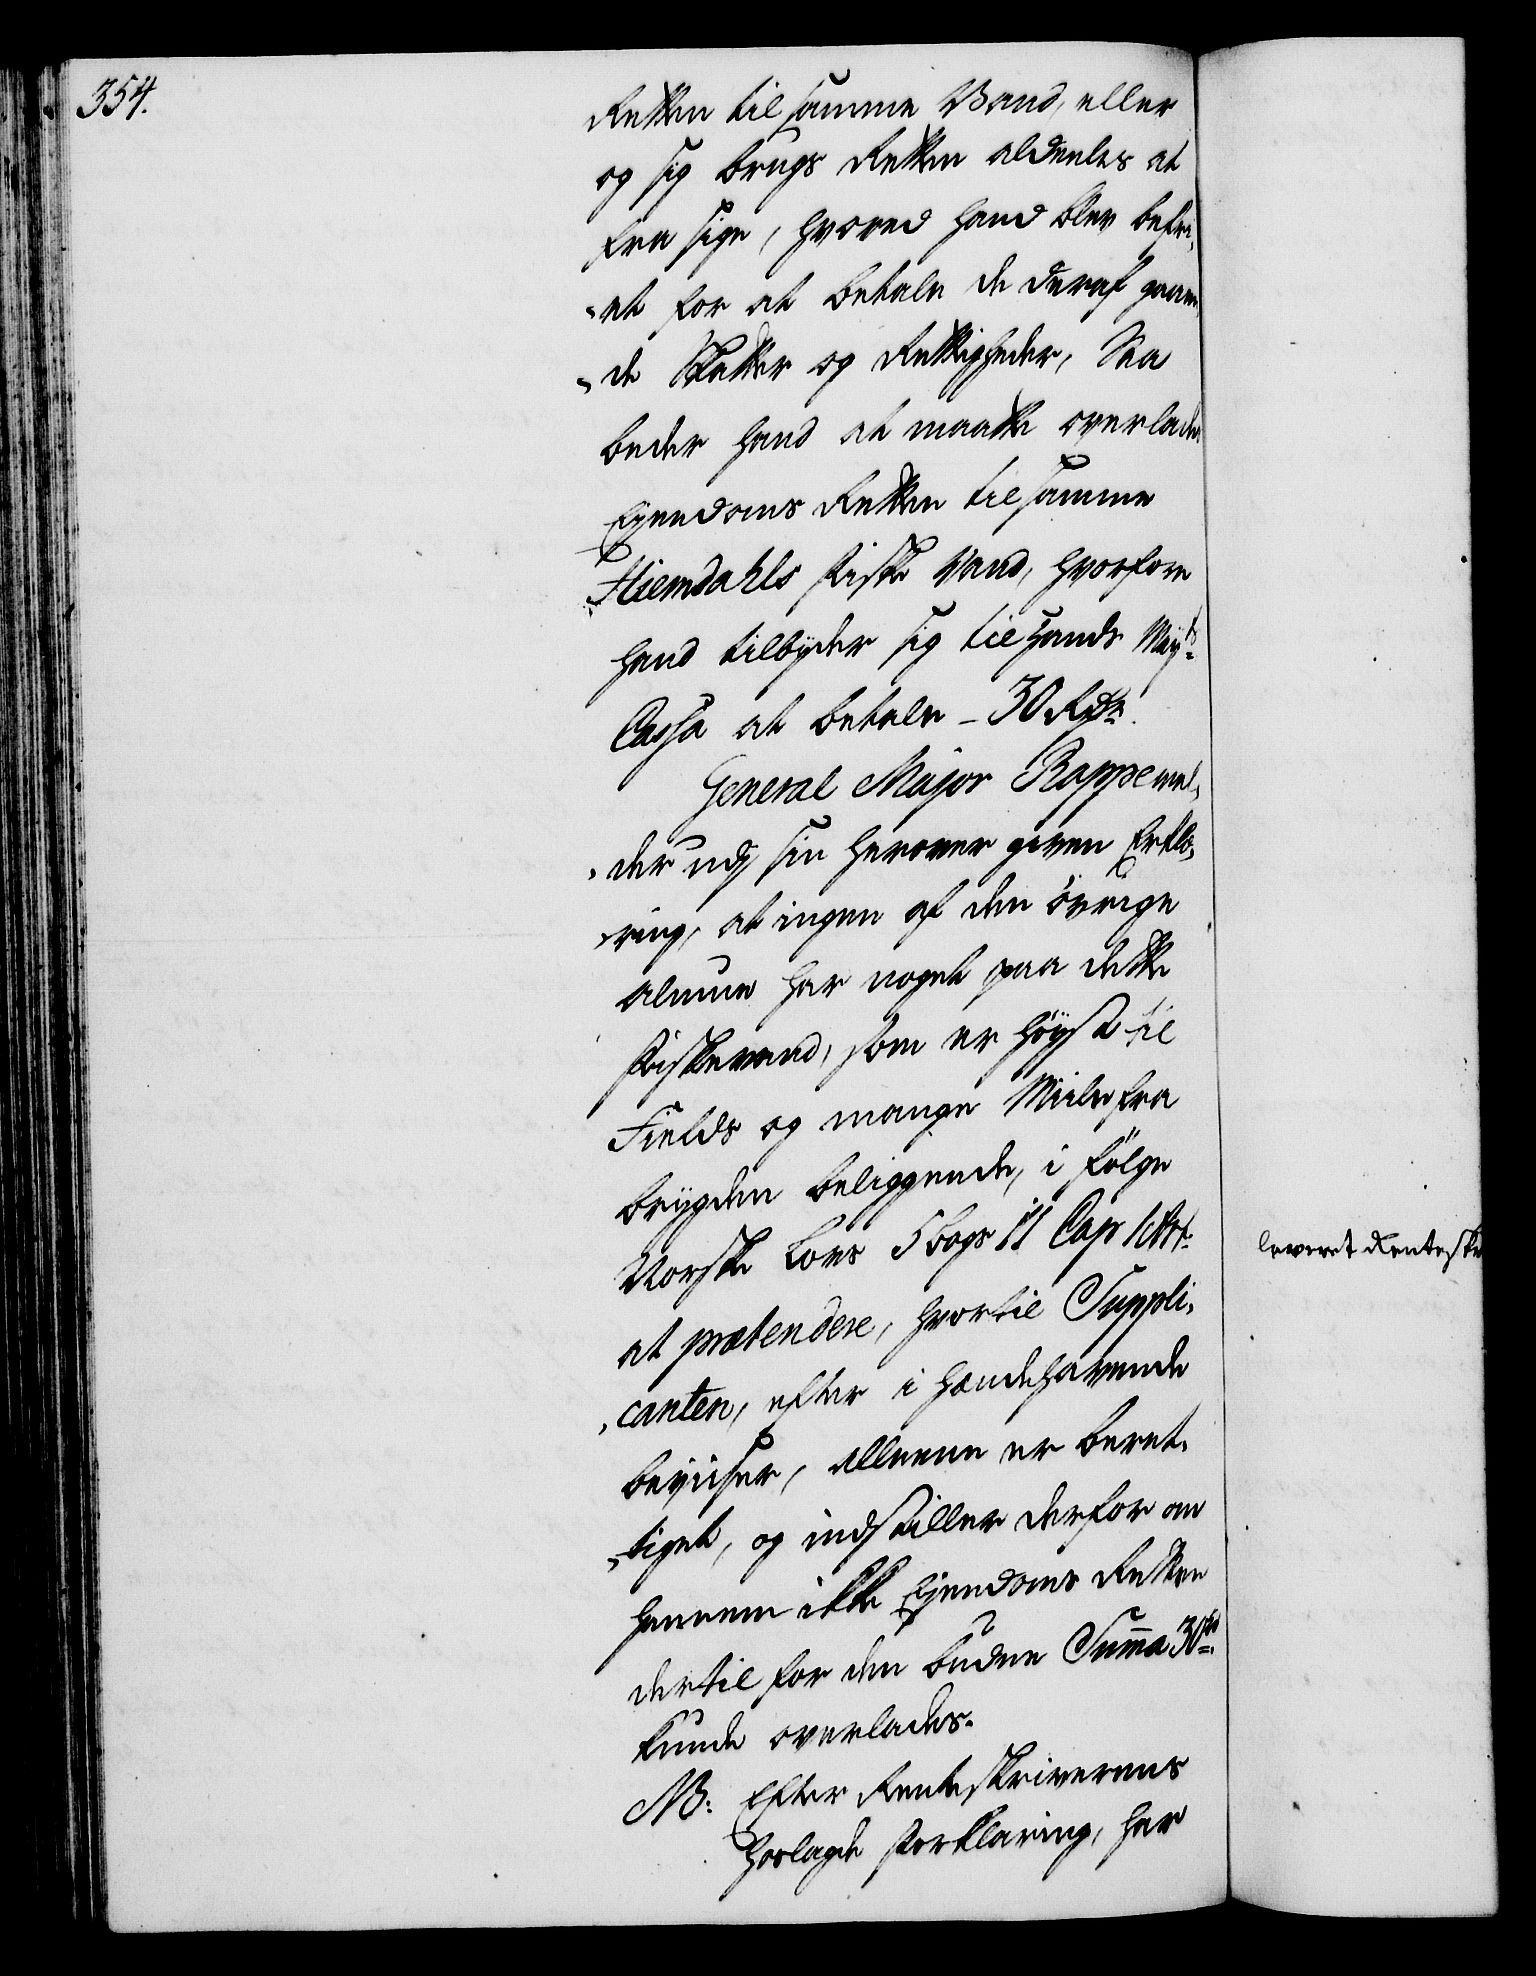 354.
Retten til samme Vand, eller
og sig brugs Retten aldeeles at
fra sige, hvoved hand blev befri,
„et for at betale de deraf gaaen
„de Skatter og Rettigheder, Saa
beder hand at maatte overlades
Ejendoms Retten til samme
Hiemdahls Fiske Vand, hvorfore
hand tilbyder sig til Hands Mayts
Cassa at betale – 30 Rdr.
General Major Rappe mel,
„der udj sin herover given Erklæ,
„ring, at ingen af den övrige
almue har noget paa dette
Fiskevand, som er höyst til
Fields og mange Miile fra
bøygden beliggende, i fölge
Norske Lovs 5 bogs 11 Cap 1 Art.
at prætendere, hvortil Suppli,
„canten, efter i hændehavende
beviiser, alleene er beret,
„tiget, og indstiller derfor om
hannem ikke Ejendoms Retten
dertil for den budne Suma 30 rd.
kunde overlades.
NB. Efter Renteskriverens
hoslagde Forklaring, har
leveret Renteskr